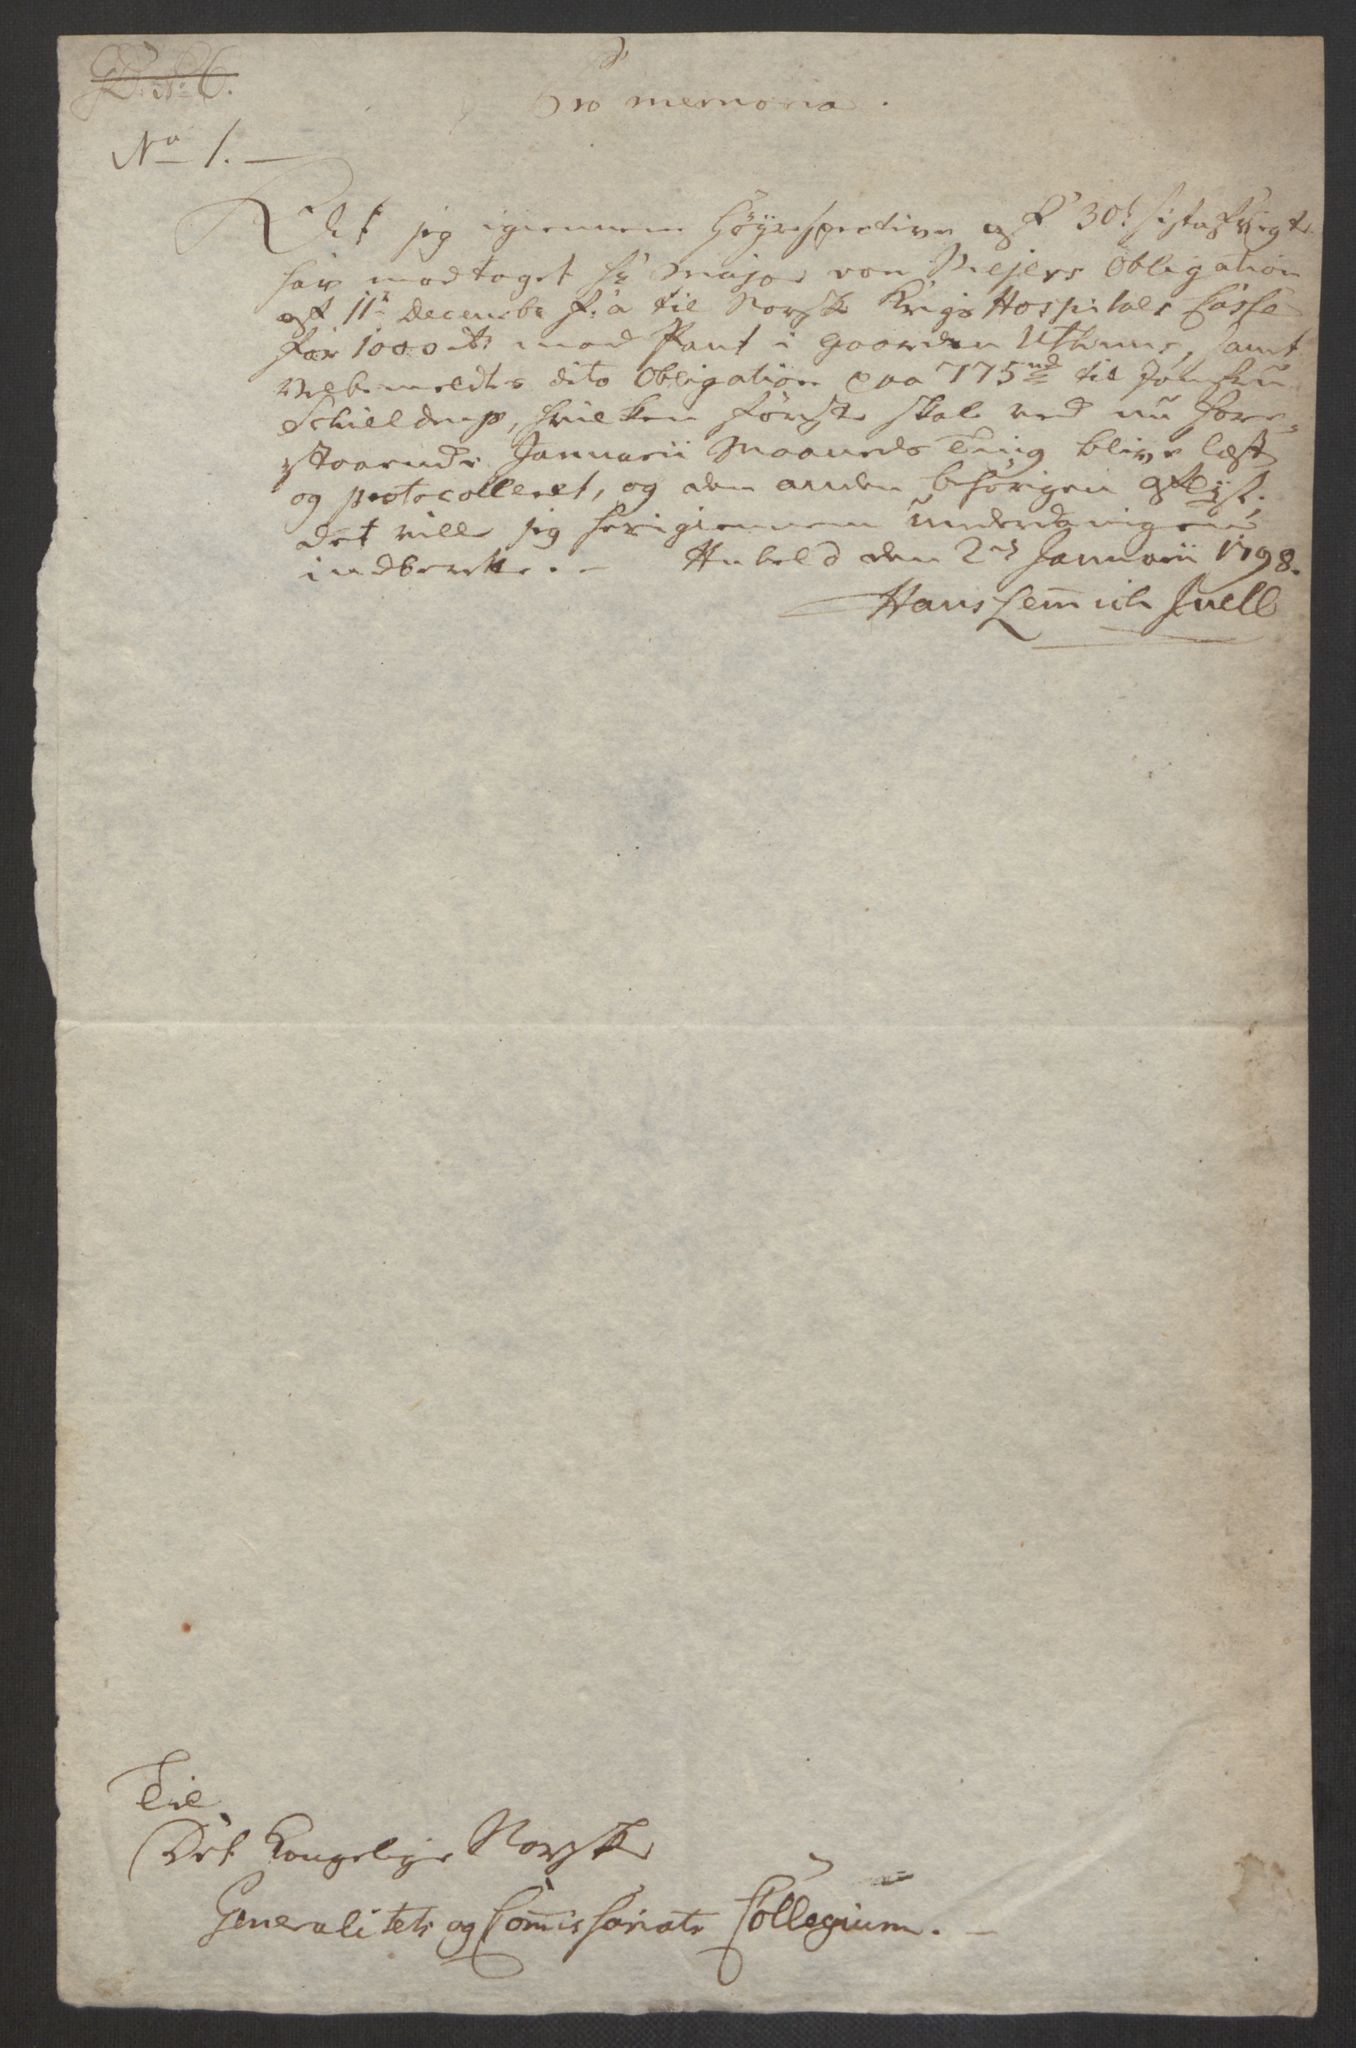 Pro memoria.
No 1.
At jeg igiennem Høyrespective af 30t sistafvigte
har modtaget Hr Major von Mejers Obligation
af 11te Decembr f: a til Norske Krigs Hospitals Casse
for 1000 rd mod Pant i Gaarden Uthuus, samt
Velbemeldtes dito Obligation paa 775 rd til Jomfru
Schielderup, hvilken første skal ved nu fore-
staaende Januarii Maaneds Ting blive læst
og protocolleret, og den anden behørigen aflyst;
det ville jeg herigiennem underdanigen
indberette. Hubeld den 2d Januarii 1798.
Hans Lemmich Juell
Til
Det Kongelige Norske
Generalitets og Commissariats Collegium.